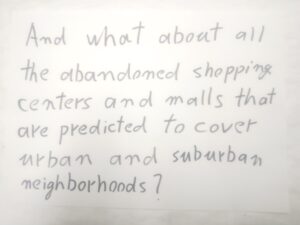 And what about all
the abandoned shopping
centers and malls that
are predicted to cover
urban and suburban
neighborhoods?